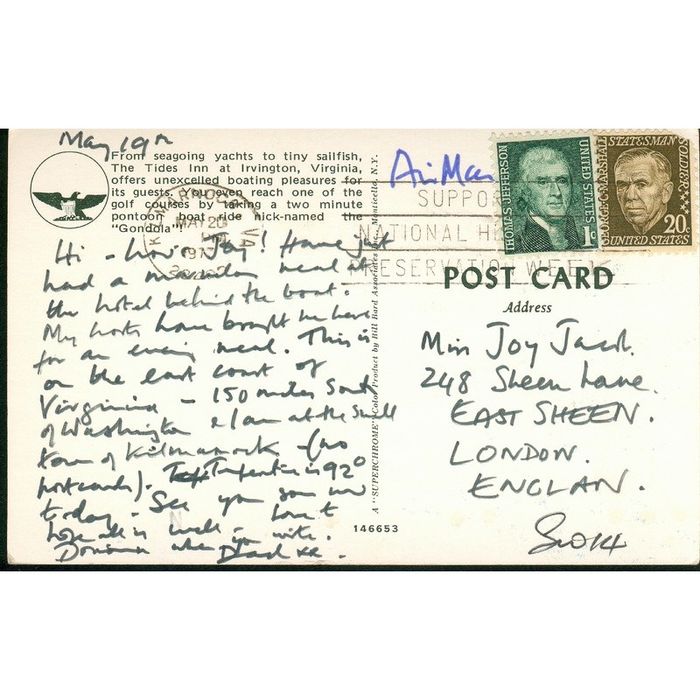 May 19th
From seagoing yachts to tiny sailfish,
The Tides Inn at Irvington, Virginia,
offers unexcelled boating pleasures for
its guests. You even reach one of the
golf courses by taking a two minute
pontoon boat ride nick-named the
"Gondola"!
Hi - Love Joy! Have just
had a meal at
the hotel behind the boat.
My hosts have bought me here
for an evening meal. This is
on the east coast of
Virginia - 150 miles South
of Washington & I am at the small
town of Kilmarnock - (no
postcards). Temperature is 92°
today - See you soon
Hope all is well - Love to
Dad xx.
A "SUPERCHROME" Color Product by Bill Bard Associates Inc., Monticello, N.Y.
146653
Air Mail
KILMARNOCK VA
MAY 20
PM
SUPPORT
NATIONAL HI
PRESERVATION WEEK
THOMAS JEFFERSON
UNITED STATES
1c
GEORGE C. MARSHALL
STATESMAN
SOLDIER
20c
UNITED STATES
POST CARD
Address
Miss Joy Jack.
248 Sheen Lane.
EAST SHEEN.
LONDON.
ENGLAN.
SW14